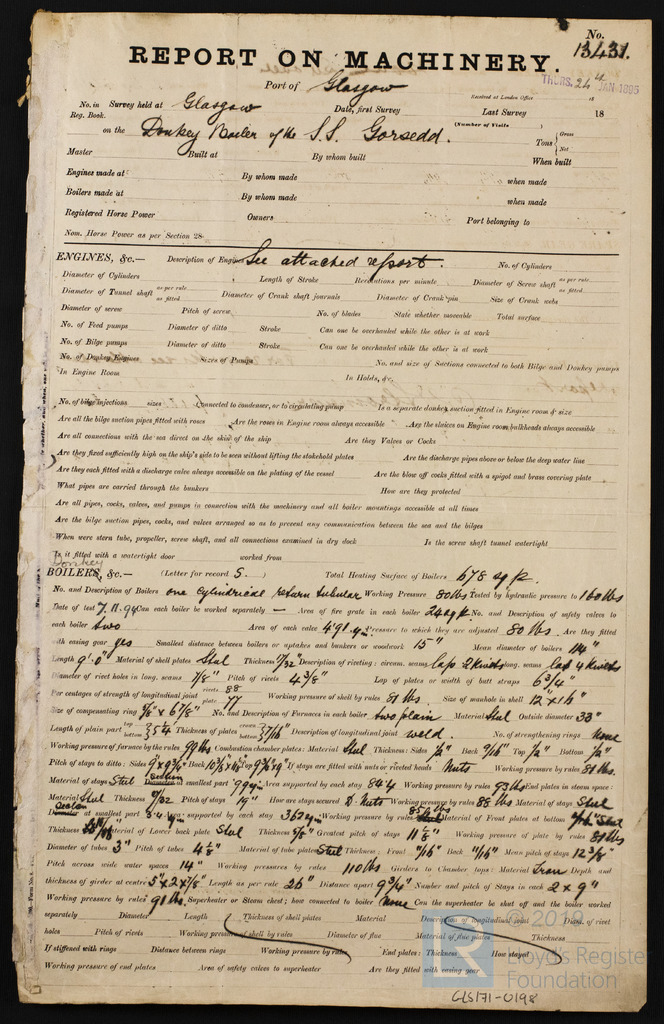 No. 13431.
REPORT ON MACHINERY.
Port of Glasgow
THURS. 24 JAN 1895
Received at London Office 18
No. in Survey held at Glasgow Date, first Survey Last Survey 18
Reg. Book. (Number of Visits)
on the Donkey Boiler of the S.S. Gorsedd. Tons Gross Net
Master Built at By whom built When built
Engines made at By whom made when made
Boilers made at By whom made when made
Registered Horse Power Owners Port belonging to
Nom. Horse Power as per Section 28
ENGINES, &c.— Description of Engines See attached report. No. of Cylinders
Diameter of Cylinders Length of Stroke Revolutions per minute Diameter of Screw shaft as per rule as fitted
Diameter of Tunnel shaft as per rule as fitted Diameter of Crank shaft journals Diameter of Crank pin Size of Crank webs
Diameter of screw Pitch of screw No. of blades State whether moveable Total surface
No. of Feed pumps Diameter of ditto Stroke Can one be overhauled while the other is at work
No. of Bilge pumps Diameter of ditto Stroke Can one be overhauled while the other is at work
No. of Donkey Engines Sizes of Pumps No. and size of Suctions connected to both Bilge and Donkey pumps
In Engine Room In Holds, &c.
No. of bilge injections sizes Connected to condenser, or to circulating pump Is a separate donkey suction fitted in Engine room & size
Are all the bilge suction pipes fitted with roses Are the roses in Engine room always accessible Are the sluices on Engine room bulkheads always accessible
Are all connections with the sea direct on the skin of the ship Are they Valves or Cocks
Are they fixed sufficiently high on the ship's side to be seen without lifting the stokehold plates Are the discharge pipes above or below the deep water line
Are they each fitted with a discharge valve always accessible on the plating of the vessel Are the blow off cocks fitted with a spigot and brass covering plate
What pipes are carried through the bunkers How are they protected
Are all pipes, cocks, valves, and pumps in connection with the machinery and all boiler mountings accessible at all times
Are the bilge suction pipes, cocks, and valves arranged so as to prevent any communication between the sea and the bilges
When were stern tube, propeller, screw shaft, and all connections examined in dry dock Is the screw shaft tunnel watertight
Is it fitted with a watertight door worked from
Donkey
BOILERS, &c.— (Letter for record S.) Total Heating Surface of Boilers 678 sq ft.
No. and Description of Boilers one cylindrical return tubular Working Pressure 80 lbs Tested by hydraulic pressure to 160 lbs
Date of test 7.11.94 Can each boiler be worked separately — Area of fire grate in each boiler 24 sq ft No. and Description of safety valves to
each boiler two Area of each valve 4.91 Pressure to which they are adjusted 80 lbs. Are they fitted
with easing gear yes Smallest distance between boilers or uptakes and bunkers or woodwork 15" Mean diameter of boilers 114"
Length 9'.0" Material of shell plates Steel Thickness 17/32 Description of riveting: circum. seams lap 2 Rivets long. seams lap 4 Rivets
Diameter of rivet holes in long. seams 7/8" Pitch of rivets 4 3/8" Lap of plates or width of butt straps 6 3/4"
Per centages of strength of longitudinal joint rivets 88 plate 77 Working pressure of shell by rules 81 lbs. Size of manhole in shell 12" x 16"
Size of compensating ring 5/8" x 6 7/8" No. and Description of Furnaces in each boiler two plain Material Steel Outside diameter 33"
Length of plain part top bottom Thickness of plates top bottom 7/16" Description of longitudinal joint weld. No. of strengthening rings None
Working pressure of furnace by the rules 99 lbs Combustion chamber plates: Material Steel Thickness: Sides 1/2" Back 9/16" Top 1/2" Bottom 1/2"
Pitch of stays to ditto: Sides 9" x 9 3/4" Back Top If stays are fitted with nuts or riveted heads Nuts Working pressure by rules 81 lbs.
Material of stays Steel Section at smallest part Area supported by each stay 84.4 Working pressure by rules 93 lbs End plates in steam space:
Material Steel Thickness Pitch of stays 19" How are stays secured D. Nuts Working pressure by rules 88 lbs Material of stays Steel
Section at smallest part Area supported by each stay 362 Working pressure by rules Material of Front plates at bottom Steel
Thickness Material of Lower back plate Steel Thickness 5/8" Greatest pitch of stays Working pressure of plate by rules 81 lbs
Diameter of tubes 3" Pitch of tubes 4 1/8" Material of tube plates Steel Thickness: Front 11/16" Back 11/16" Mean pitch of stays 12 3/8"
Pitch across wide water spaces 14" Working pressures by rules 110 lbs Girders to Chamber tops: Material Iron Depth and
thickness of girder at centre 5" x 2 x 7/8" Length as per rule 26" Distance apart 9 3/4" Number and pitch of Stays in each 2 x 9"
Working pressure by rules 91 lbs. Superheater or Steam chest; how connected to boiler None Can the superheater be shut off and the boiler worked
separately Diameter Length Thickness of shell plates Material Description of longitudinal joint Diam. of rivet
holes Pitch of rivets Working pressure of shell by rules Diameter of flue Material of flue plates Thickness
If stiffened with rings Distance between rings Working pressure by rules End plates: Thickness How stayed
Working pressure of end plates Area of safety valves to superheater Are they fitted with easing gear
© 2019
Lloyd's Register
Foundation
GLS171-0198